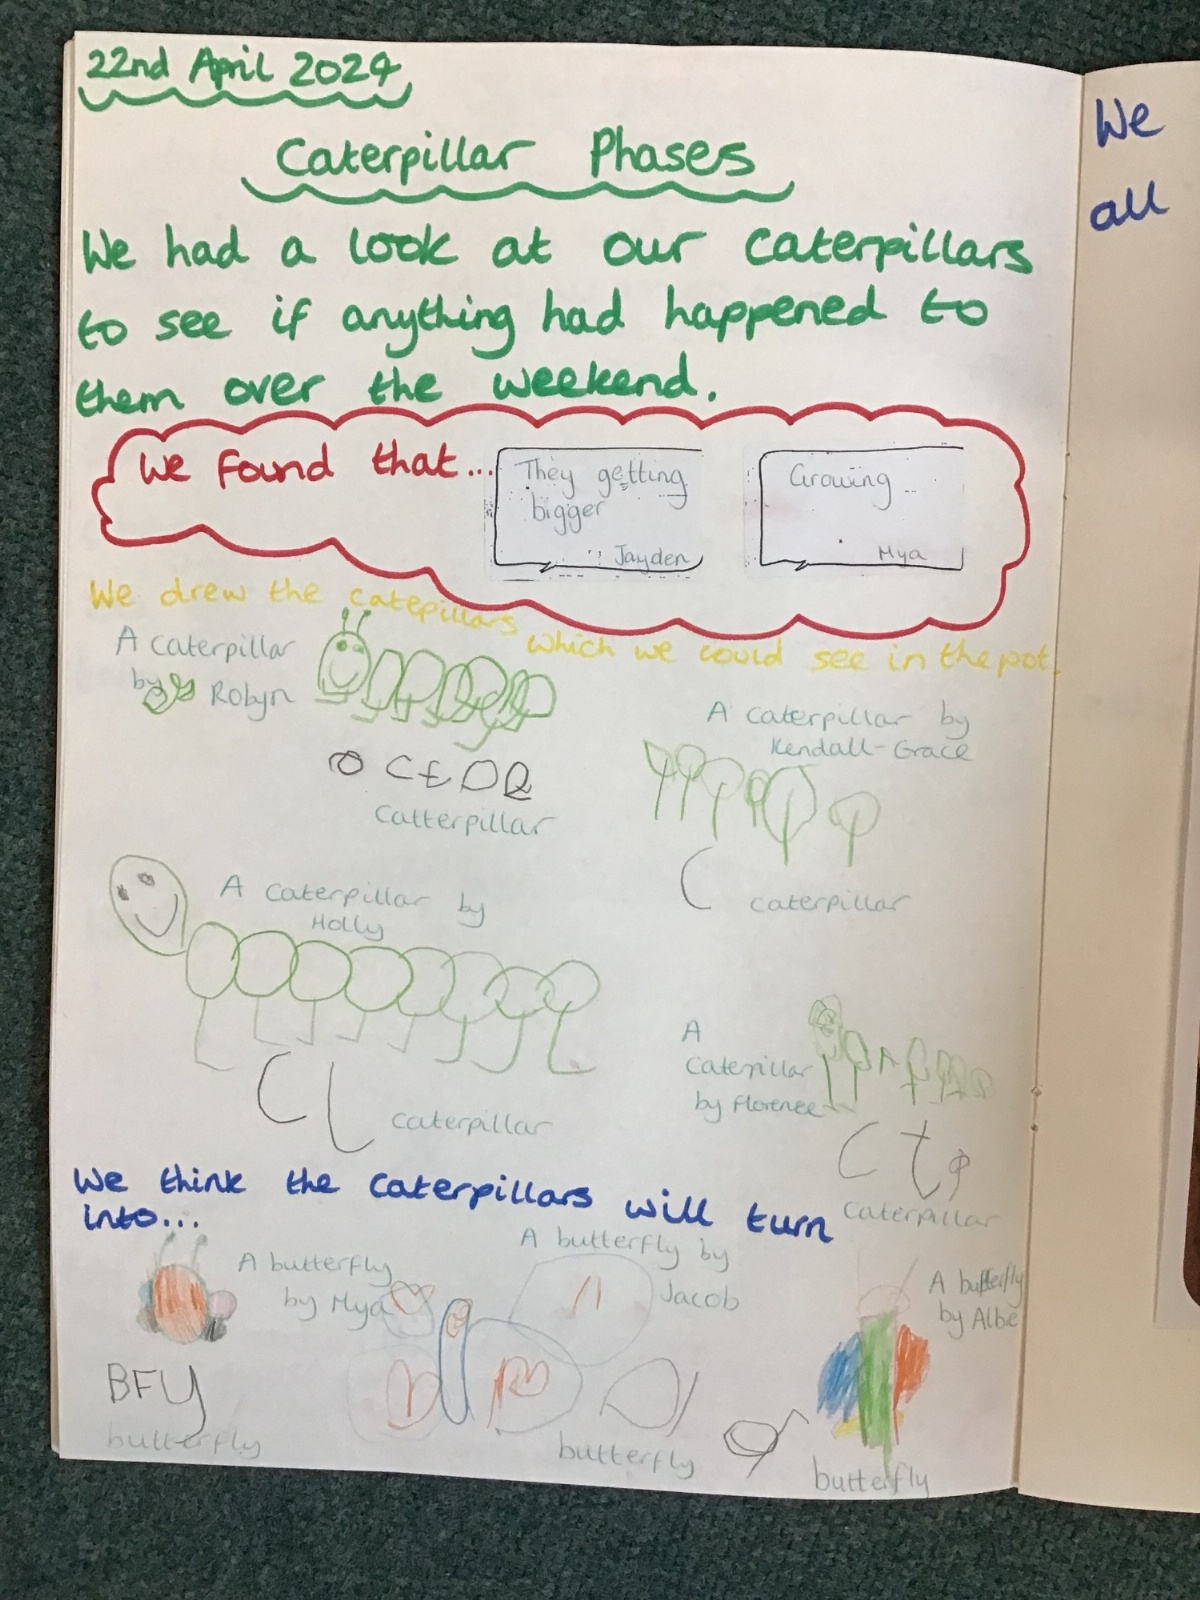 22nd April 2024
Caterpillar Phases
We had a look at our caterpillars
to see if anything had happened to
them over the weekend.
We found that...
They getting
bigger
Jayden
Growing
Mya
We drew the catepillars which we could see in the pot.
A caterpillar
by Robyn
Catterpillar
A caterpillar by
Kendall-Grace
C
caterpillar
A caterpillar by
Holly
C L
caterpillar
A
Caterpillar
by Florence
C t
caterpillar
We think the caterpillars will turn
into...
A butterfly
by Mya
BFY
butterfly
A butterfly by
Jacob
butterfly
A butterfly
by Albe
butterfly
We
all